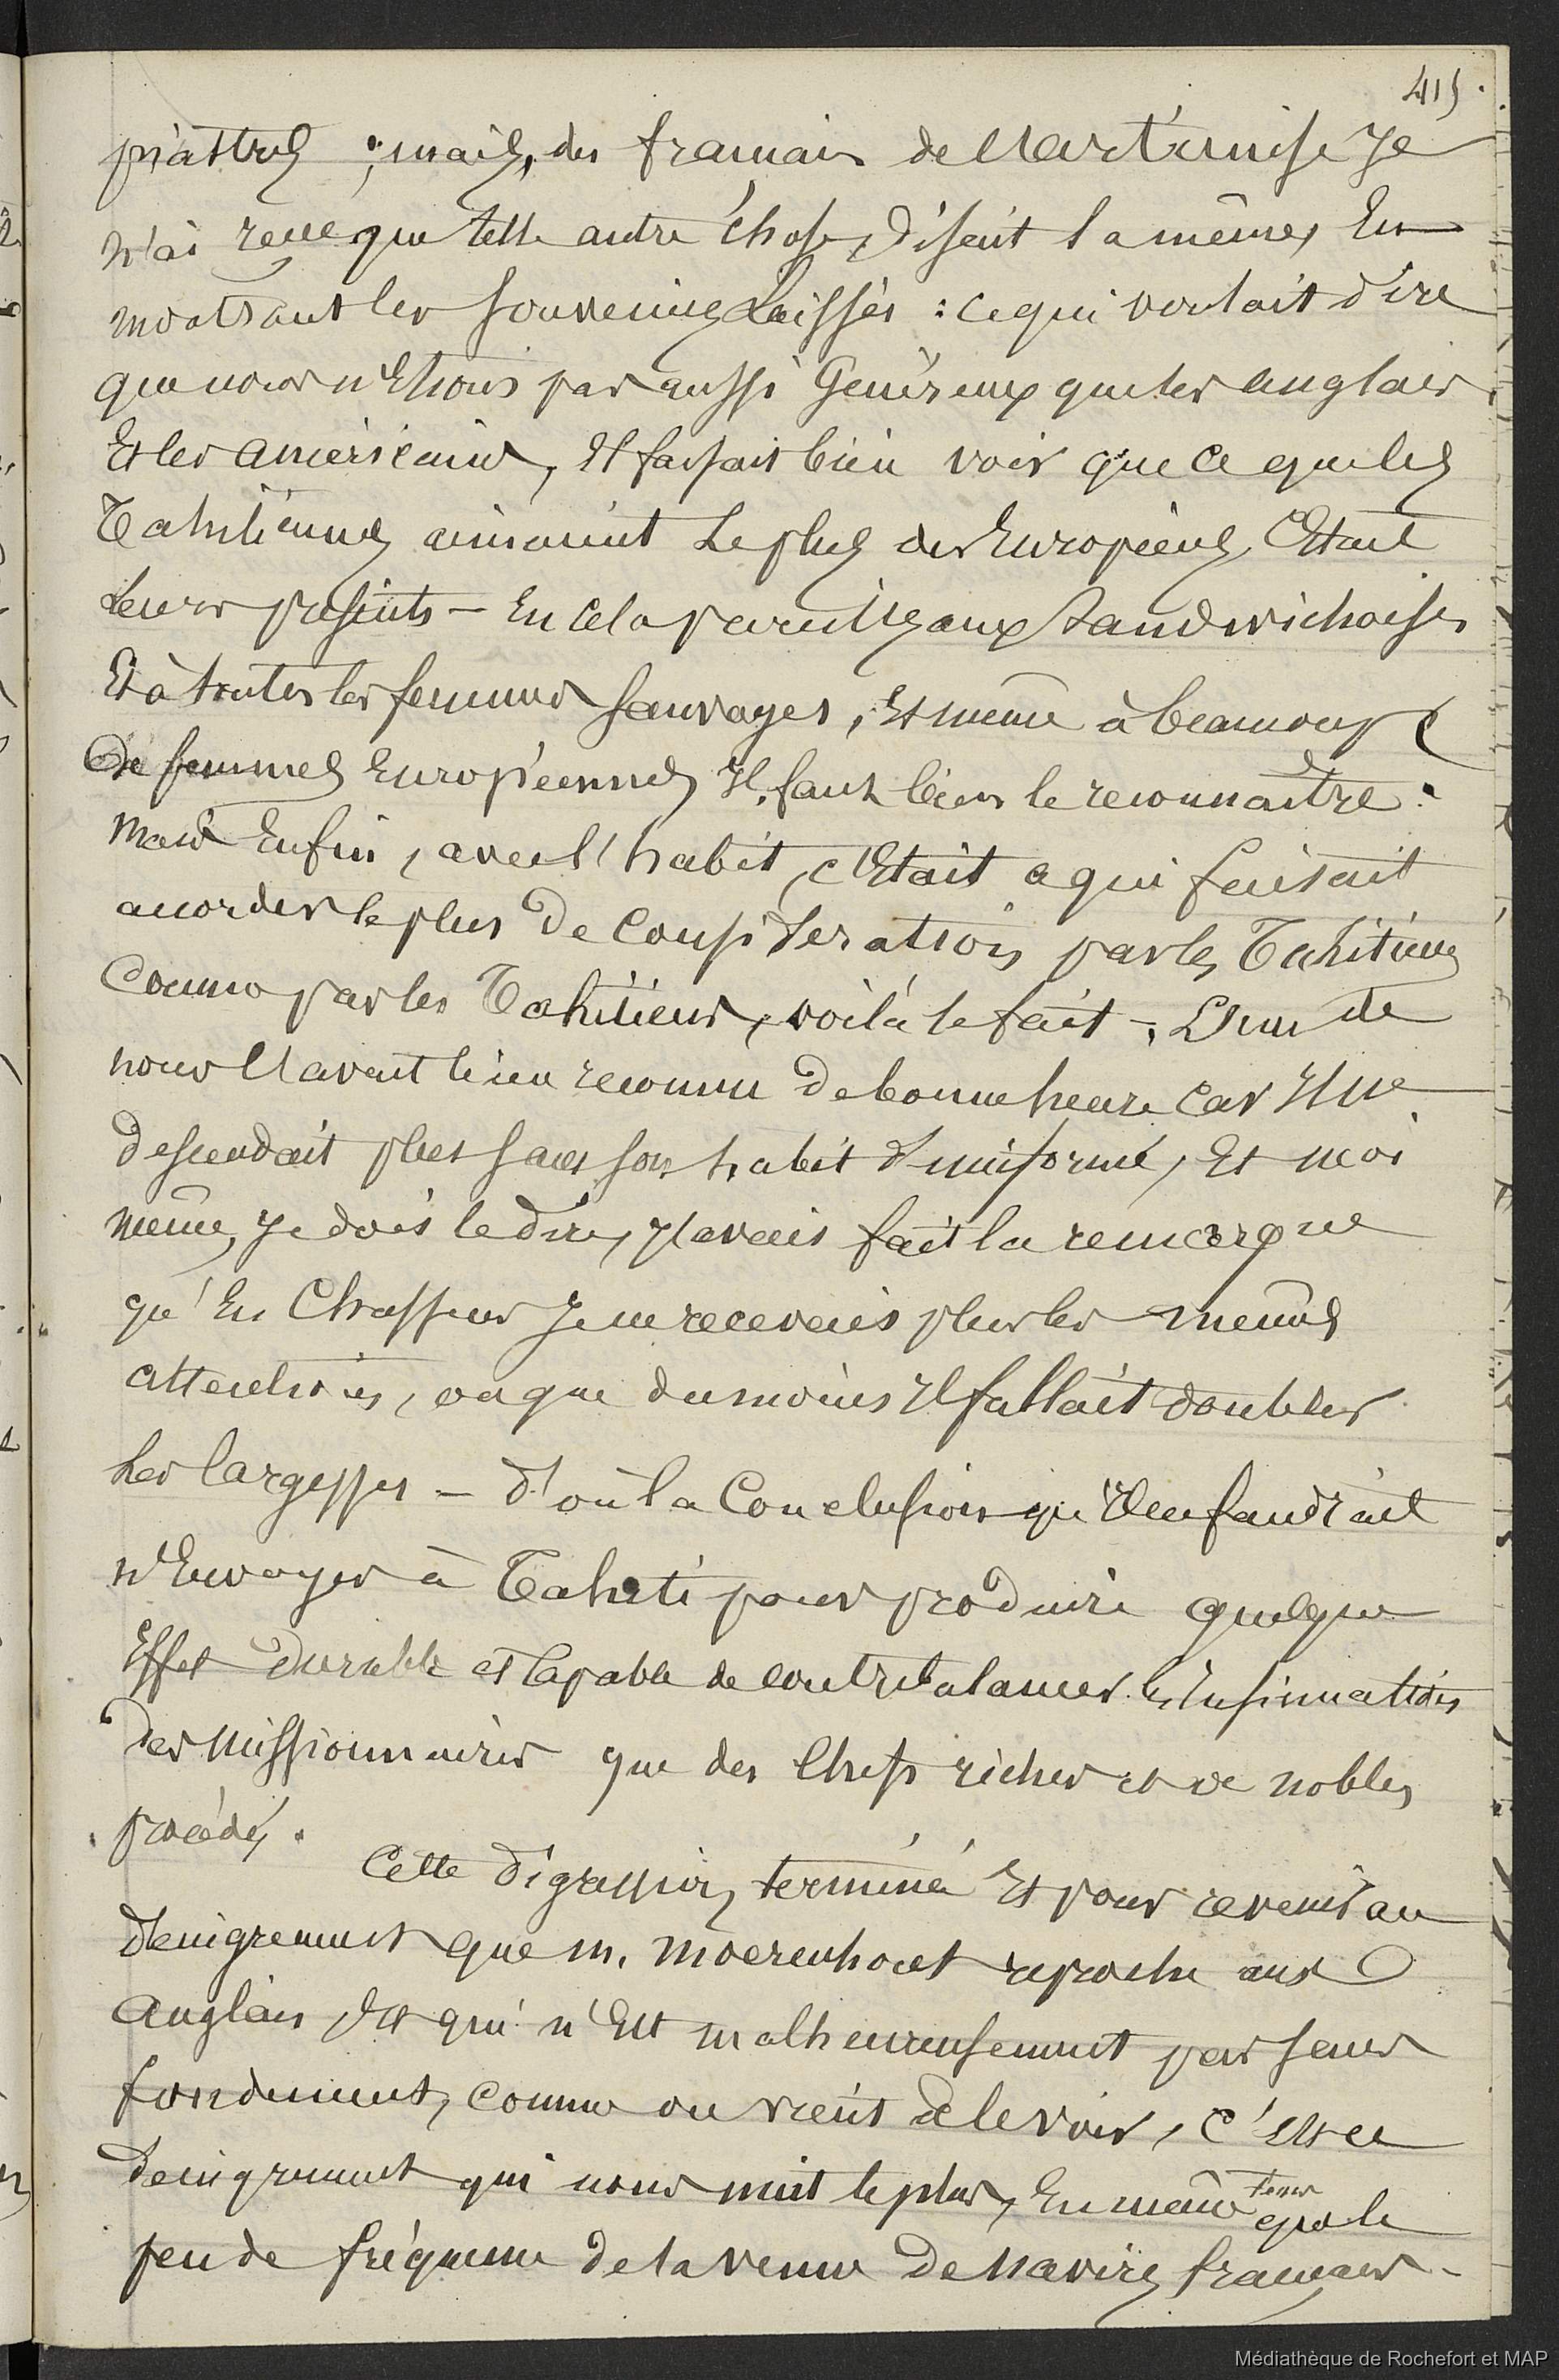 415.
piastres ; mais, des français de l'Artémise je
n'ai reçu que telle autre chose, disait la même, En
montrant les souvenirs Laissés : ce qui voulait dire
que nous n'Etions pas aussi Généreux que les anglais
Et les américains, Et faisait bien voir que ce que les
Tahitiennes aimaient Le plus des Européens, C'Etait
Leurs présents — En cela pareilles aux Sandwichoises,
Et à toutes les femmes sauvages, Et même à beaucoup
De femmes Européennes, Il faut bien le reconnaître.
Mais Enfin, avec l'habit, c'Etait à qui faisait
accorder le plus De Considération par les Tahitiens
Comme par les Tahitiens, voilà le fait —, L'un de
nous l'avait bien reconnu De bonne heure car Il ne
descendait plus sans son habit d'uniforme, Et moi
même, Je dois le dire, J'avais fait la remarque
qu'En Chasseur Je ne recevais plus les mêmes
attentions, ou que du moins Il fallait doubler
Les largesses — D'où la Conclusion qu'Il ne faudrait
n'Envoyer à Tahiti pour produire quelque
Effet Durable et Capable de contrebalancer les Insinuations
Des Missionnaires que des Chefs riches et de nobles
procédés.
Cette digression, terminée Et pour revenir au
dénigrement que M. Moerenhout reproche aux
Anglais Et qui n'Est malheureusement pas sans
fondement, comme on vient de le voir, c'Est ce
Dénigrement qui nous nuit le plus, En même tems que le
peu de fréquence De la venue De Navires français —
Médiathèque de Rochefort et MAP